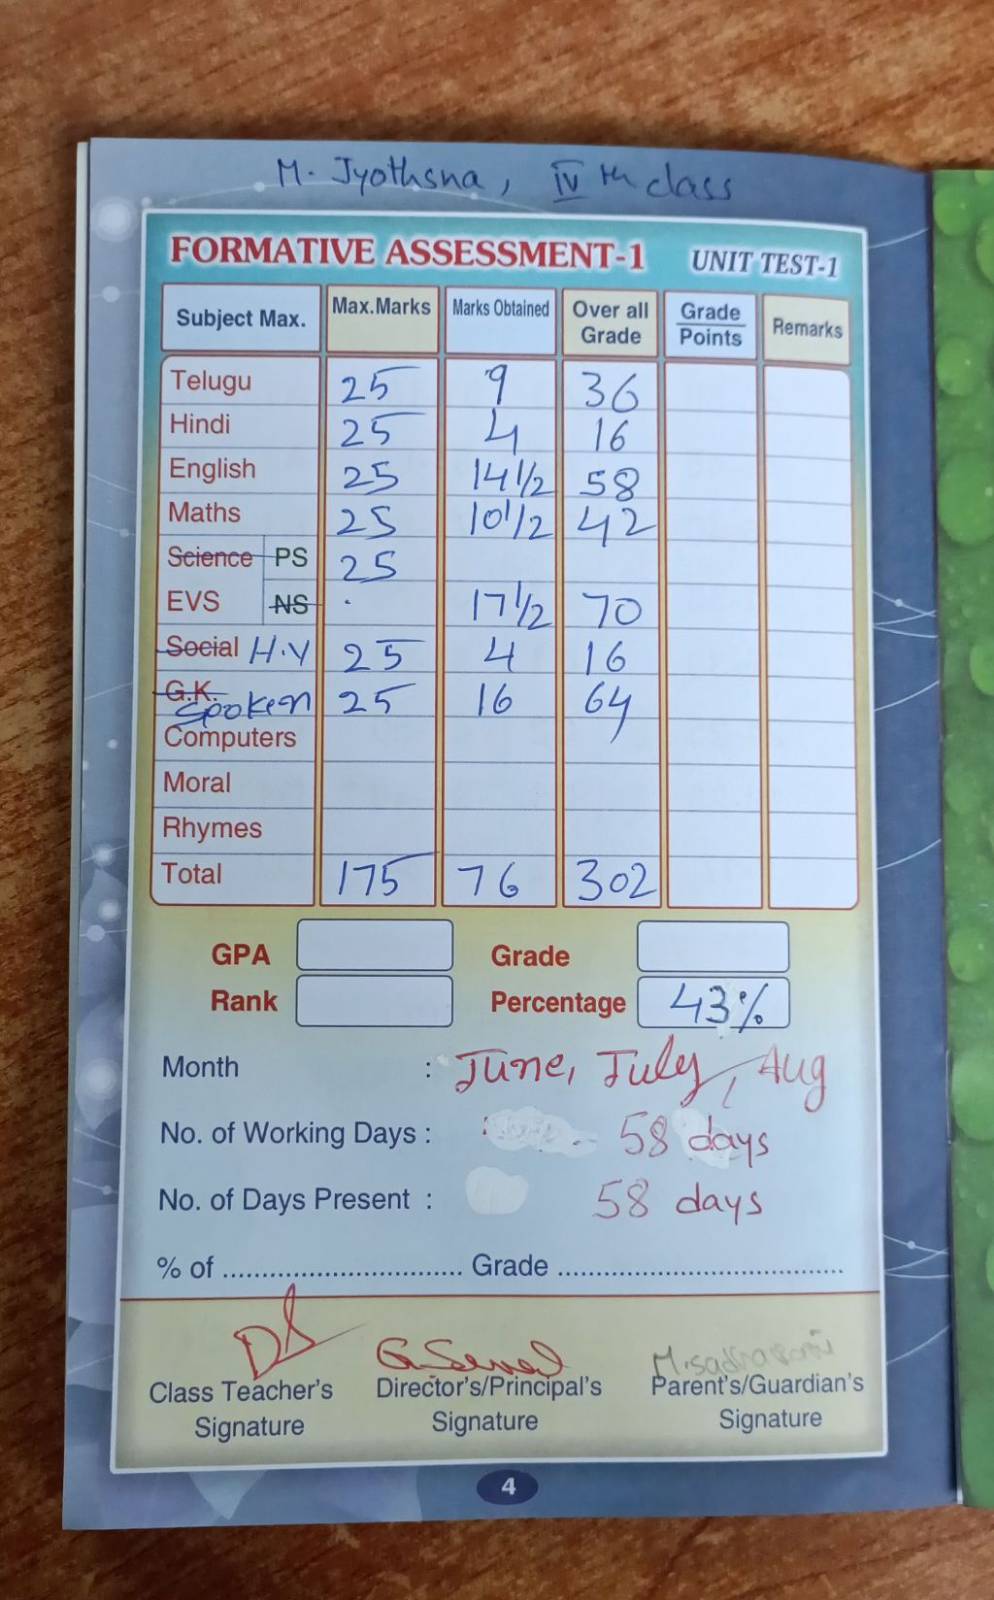 M. Jyothsna, IV th class
FORMATIVE ASSESSMENT-1 UNIT TEST-1
Subject Max. Max.Marks Marks Obtained Over all Grade Grade Points Remarks
Telugu 25 9 36
Hindi 25 4 16
English 25 14 1/2 58
Maths 25 10 1/2 42
Science PS 25
EVS NS 17 1/2 70
Social H.Y 25 4 16
G.K. Spoken 25 16 64
Computers
Moral
Rhymes
Total 175 76 302
GPA Grade
Rank Percentage 43%
Month : June, July, Aug
No. of Working Days : 58 days
No. of Days Present : 58 days
% of .............................. Grade ....................................
DS G. M.
Class Teacher's Signature Director's/Principal's Signature Parent's/Guardian's Signature
4